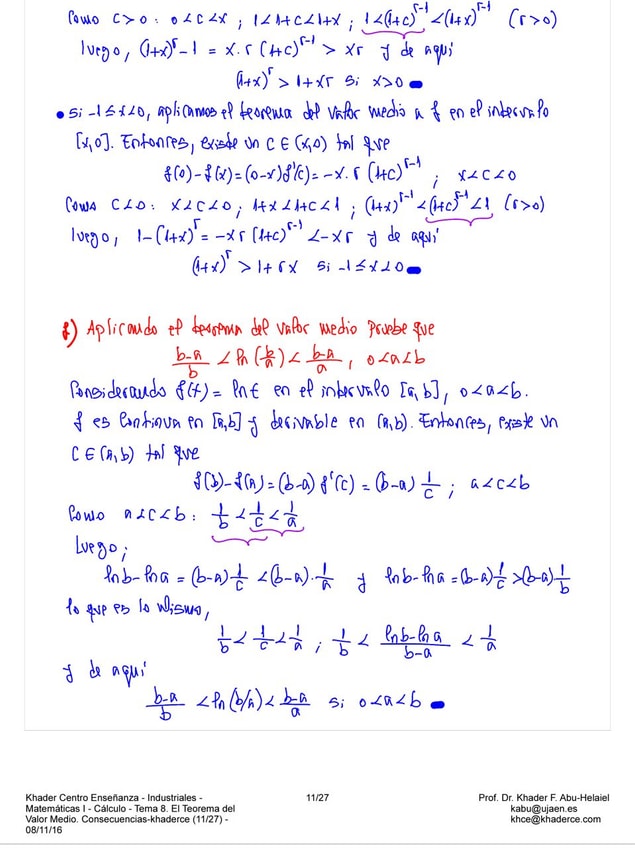 Como c>0: 0<c<x; 1<1+c<1+x; 1<(1+c)^{r-1}<(1+x)^{r-1} (r>0)
luego, (1+x)^r-1 = x.r(1+c)^{r-1} > xr y de aquí
(1+x)^r > 1+xr si x>0
• Si -1≤x<0, aplicamos el teorema del valor medio a f en el intervalo
[x,0]. Entonces, existe un c∈(x,0) tal que
f(0)-f(x)=(0-x)f'(c)=-x.r(1+c)^{r-1}; x<c<0
Como c<0: x<c<0; 1+x<1+c<1; (1+x)^{r-1}<(1+c)^{r-1}<1 (r>0)
luego, 1-(1+x)^r=-xr(1+c)^{r-1}<-xr y de aquí
(1+x)^r>1+rx si -1≤x<0
f) Aplicando el teorema del valor medio pruebe que
\frac{b-a}{b} < ln(\frac{b}{a}) < \frac{b-a}{a}, 0<a<b
Considerando f(t)=lnt en el intervalo [a,b], 0<a<b.
f es continua en [a,b] y derivable en (a,b). Entonces, existe un
c∈(a,b) tal que
f(b)-f(a)=(b-a)f'(c)=(b-a)\frac{1}{c}; a<c<b
Como a<c<b: \frac{1}{b}<\frac{1}{c}<\frac{1}{a}
Luego;
lnb-lna=(b-a)\frac{1}{c}<(b-a).\frac{1}{a} y lnb-lna=(b-a)\frac{1}{c}>(b-a)\frac{1}{b}
lo que es lo mismo,
\frac{1}{b}<\frac{1}{c}<\frac{1}{a}; \frac{1}{b}<\frac{lnb-lna}{b-a}<\frac{1}{a}
y de aquí
\frac{b-a}{b}<ln(b/a)<\frac{b-a}{a} si 0<a<b
Khader Centro Enseñanza - Industriales -
Matemáticas I - Cálculo - Tema 8. El Teorema del
Valor Medio. Consecuencias-khaderce (11/27) -
08/11/16
11/27
Prof. Dr. Khader F. Abu-Helaiel
kabu@ujaen.es
khce@khaderce.com